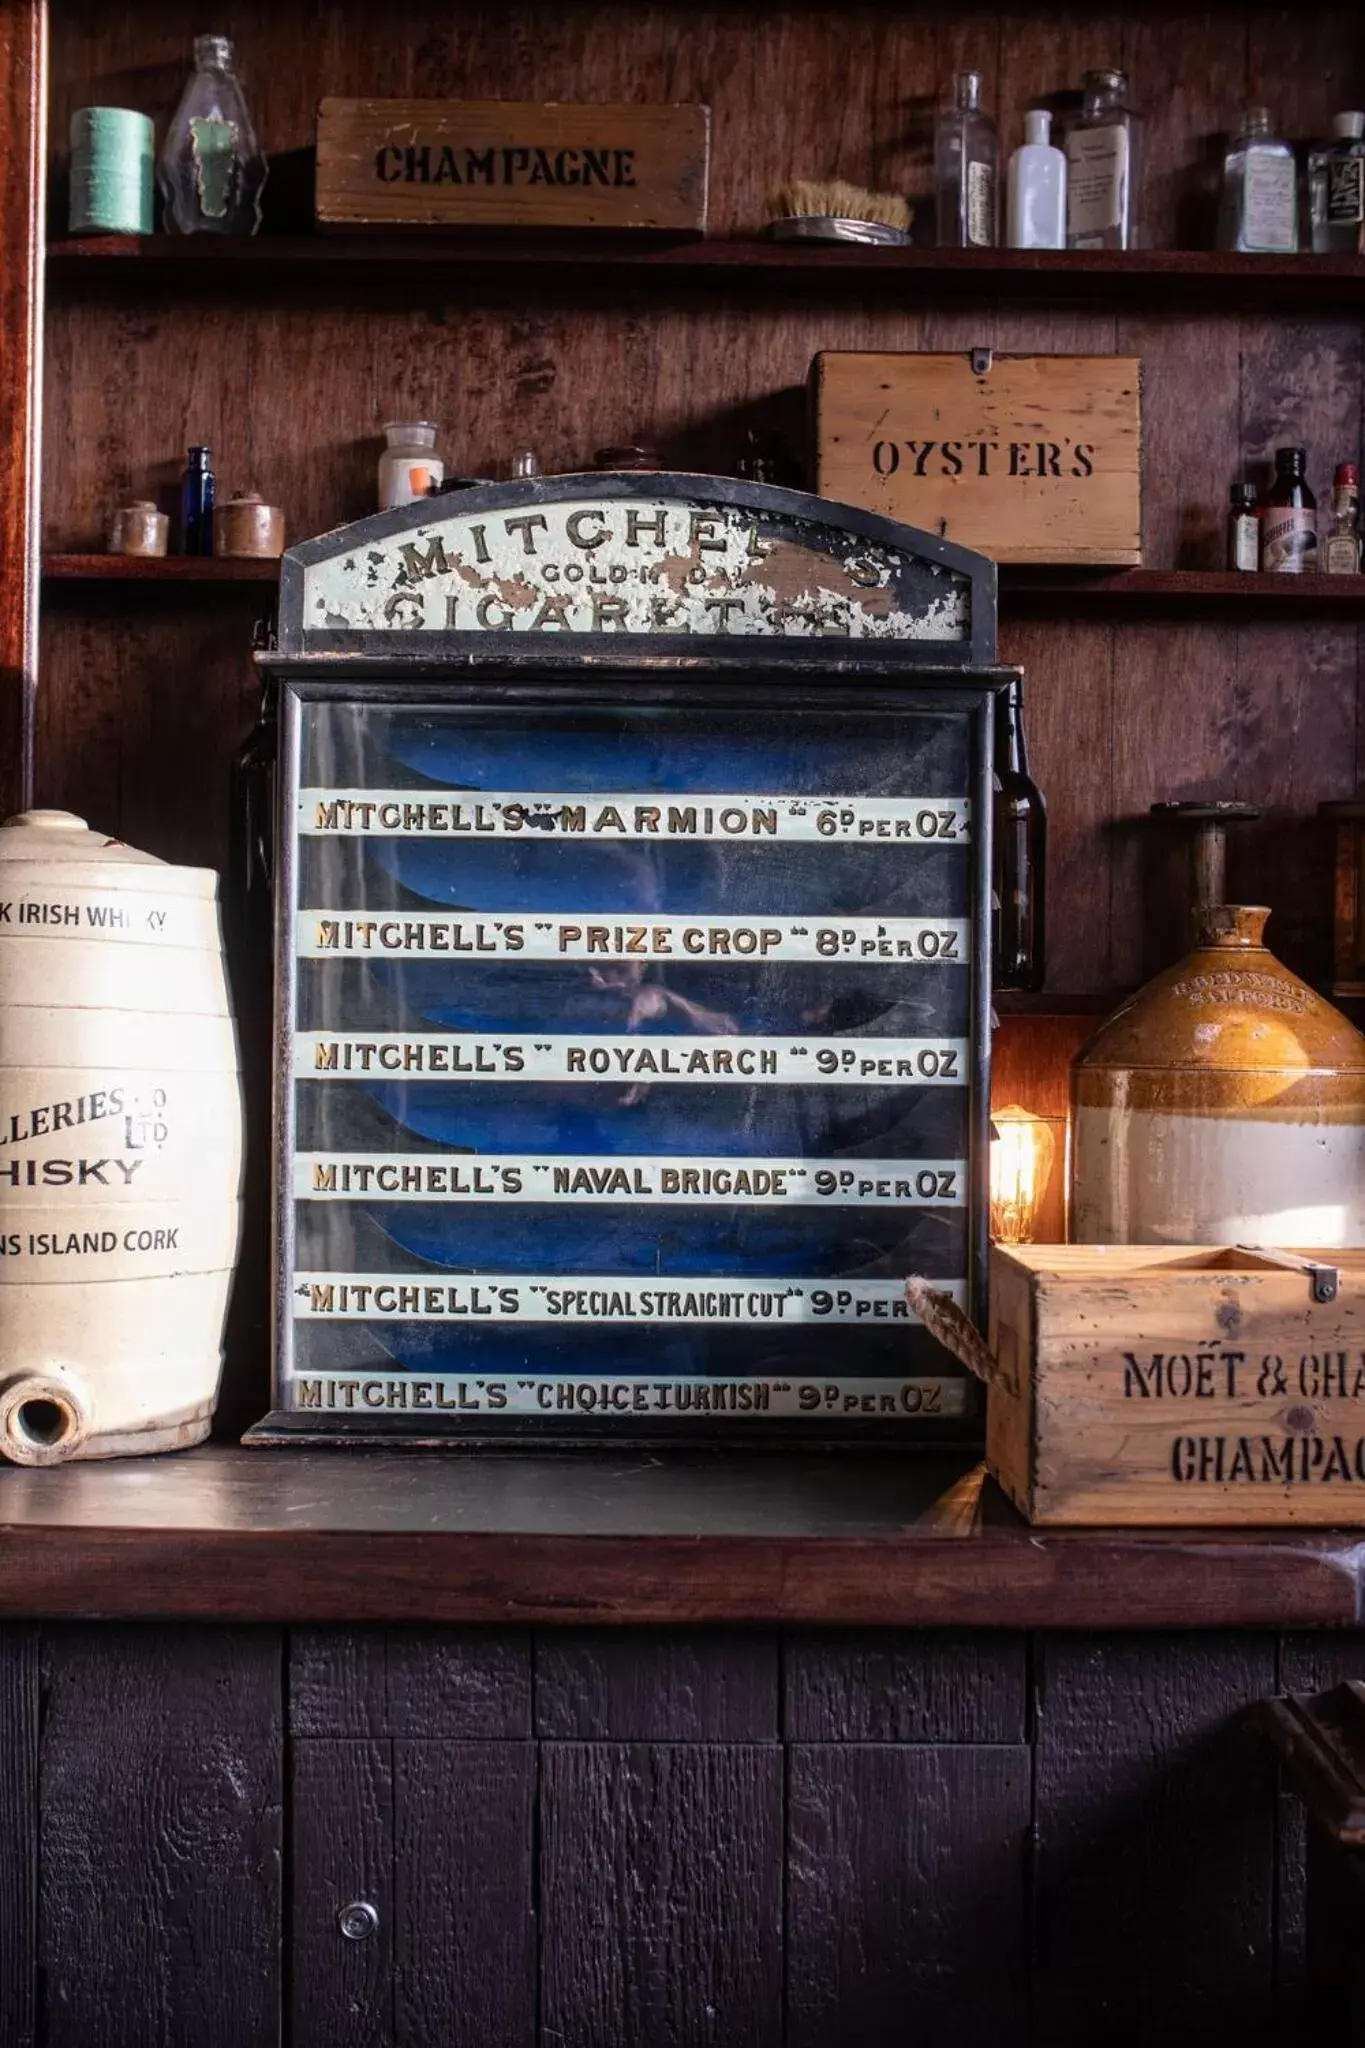 CHAMPAGNE
OYSTER'S
MITCHELL'S
GOLD
CIGARETTE
MITCHELL'S "MARMION" 6D PER OZ
MITCHELL'S "PRIZE CROP" 8D PER OZ
MITCHELL'S "ROYAL ARCH" 9D PER OZ
MITCHELL'S "NAVAL BRIGADE" 9D PER OZ
MITCHELL'S "SPECIAL STRAIGHT CUT" 9D PER
MITCHELL'S "CHOICE TURKISH" 9D PER OZ
K IRISH WHI KY
LLERIES CO
LTD
HISKY
NS ISLAND CORK
SALFORD
MOËT & CHA
CHAMPAG